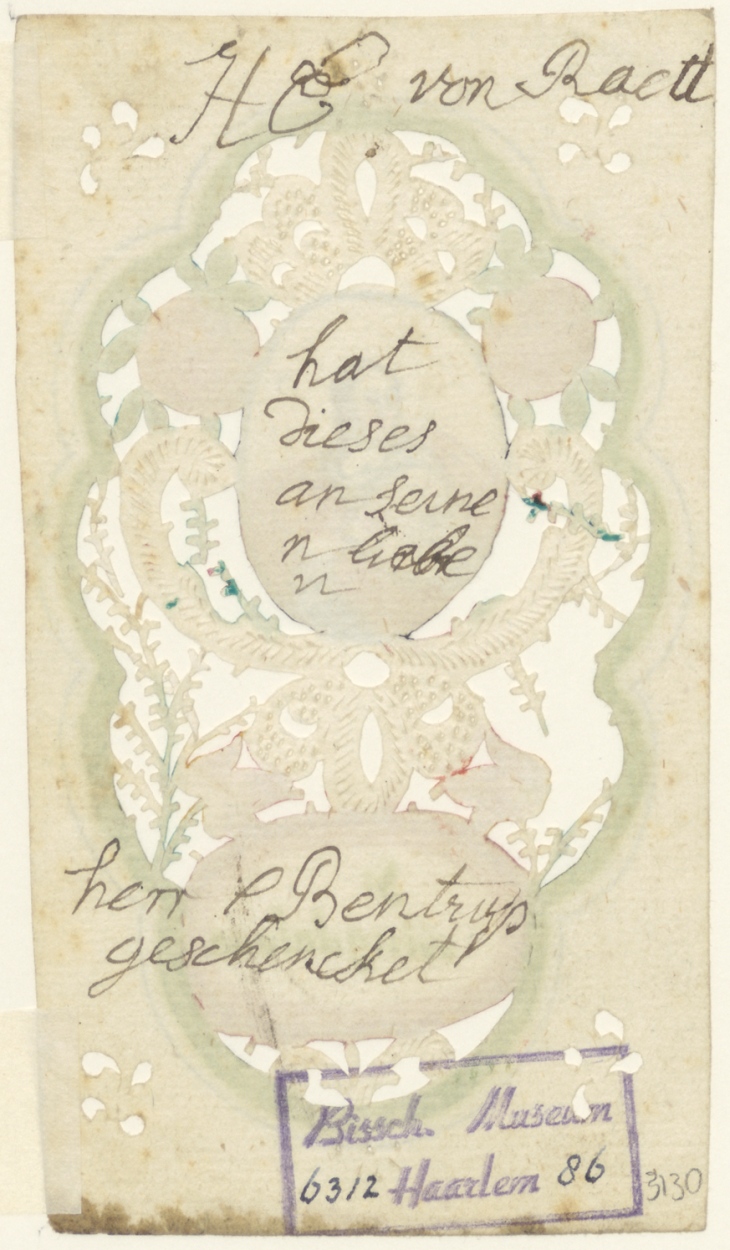 H E von Raett
hat
dieses
an seine
n liebe
n
herr P Bentrup
geschencket
Bissch. Museum
6312 Haarlem 86
3130